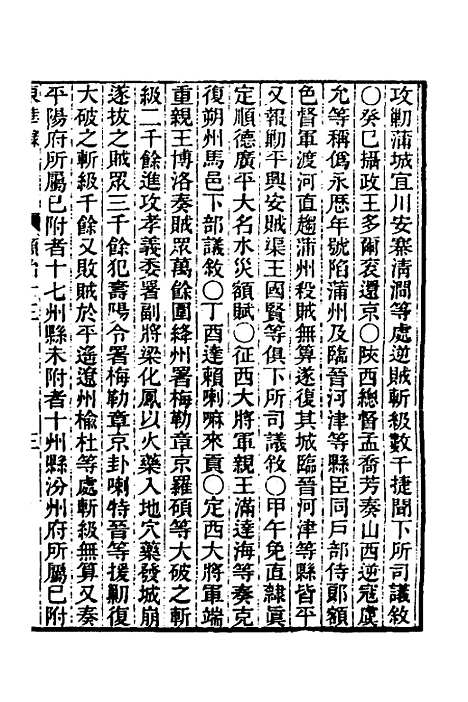 攻勦蒲城宜川安寨淸澗等處逆賊斬級數千捷聞下所司議敘
〇癸巳攝政王多爾袞還京〇陝西總督孟喬芳奏山西逆寇虞
允等稱僞永歷年號陷蒲州及臨晉河津等縣臣同戶部侍郎額
色督軍渡河直趨蒲州殺賊無算遂復其城臨晉河津等縣皆平
又報勦平興安賊渠王國賢等俱下所司議敘〇甲午免直隸眞
定順德廣平大名水災額賦〇征西大將軍親王滿達海等奏克
復朔州馬邑下部議敘〇丁酉達賴喇嘛來貢〇定西大將軍端
重親王博洛奏賊眾萬餘圍絳州署梅勒章京羅碩等大破之斬
級二千餘進攻孝義委署副將梁化鳳以火藥入地穴藥發城崩
遂拔之賊眾三千餘犯壽陽令署梅勒章京卦喇特晉等援勦復
大破之斬級千餘又敗賊於平遙遼州榆杜等處斬級無算又奏
平陽府所屬已附者十七州縣未附者十州縣汾州府所屬已附
東華錄 順治十三 三